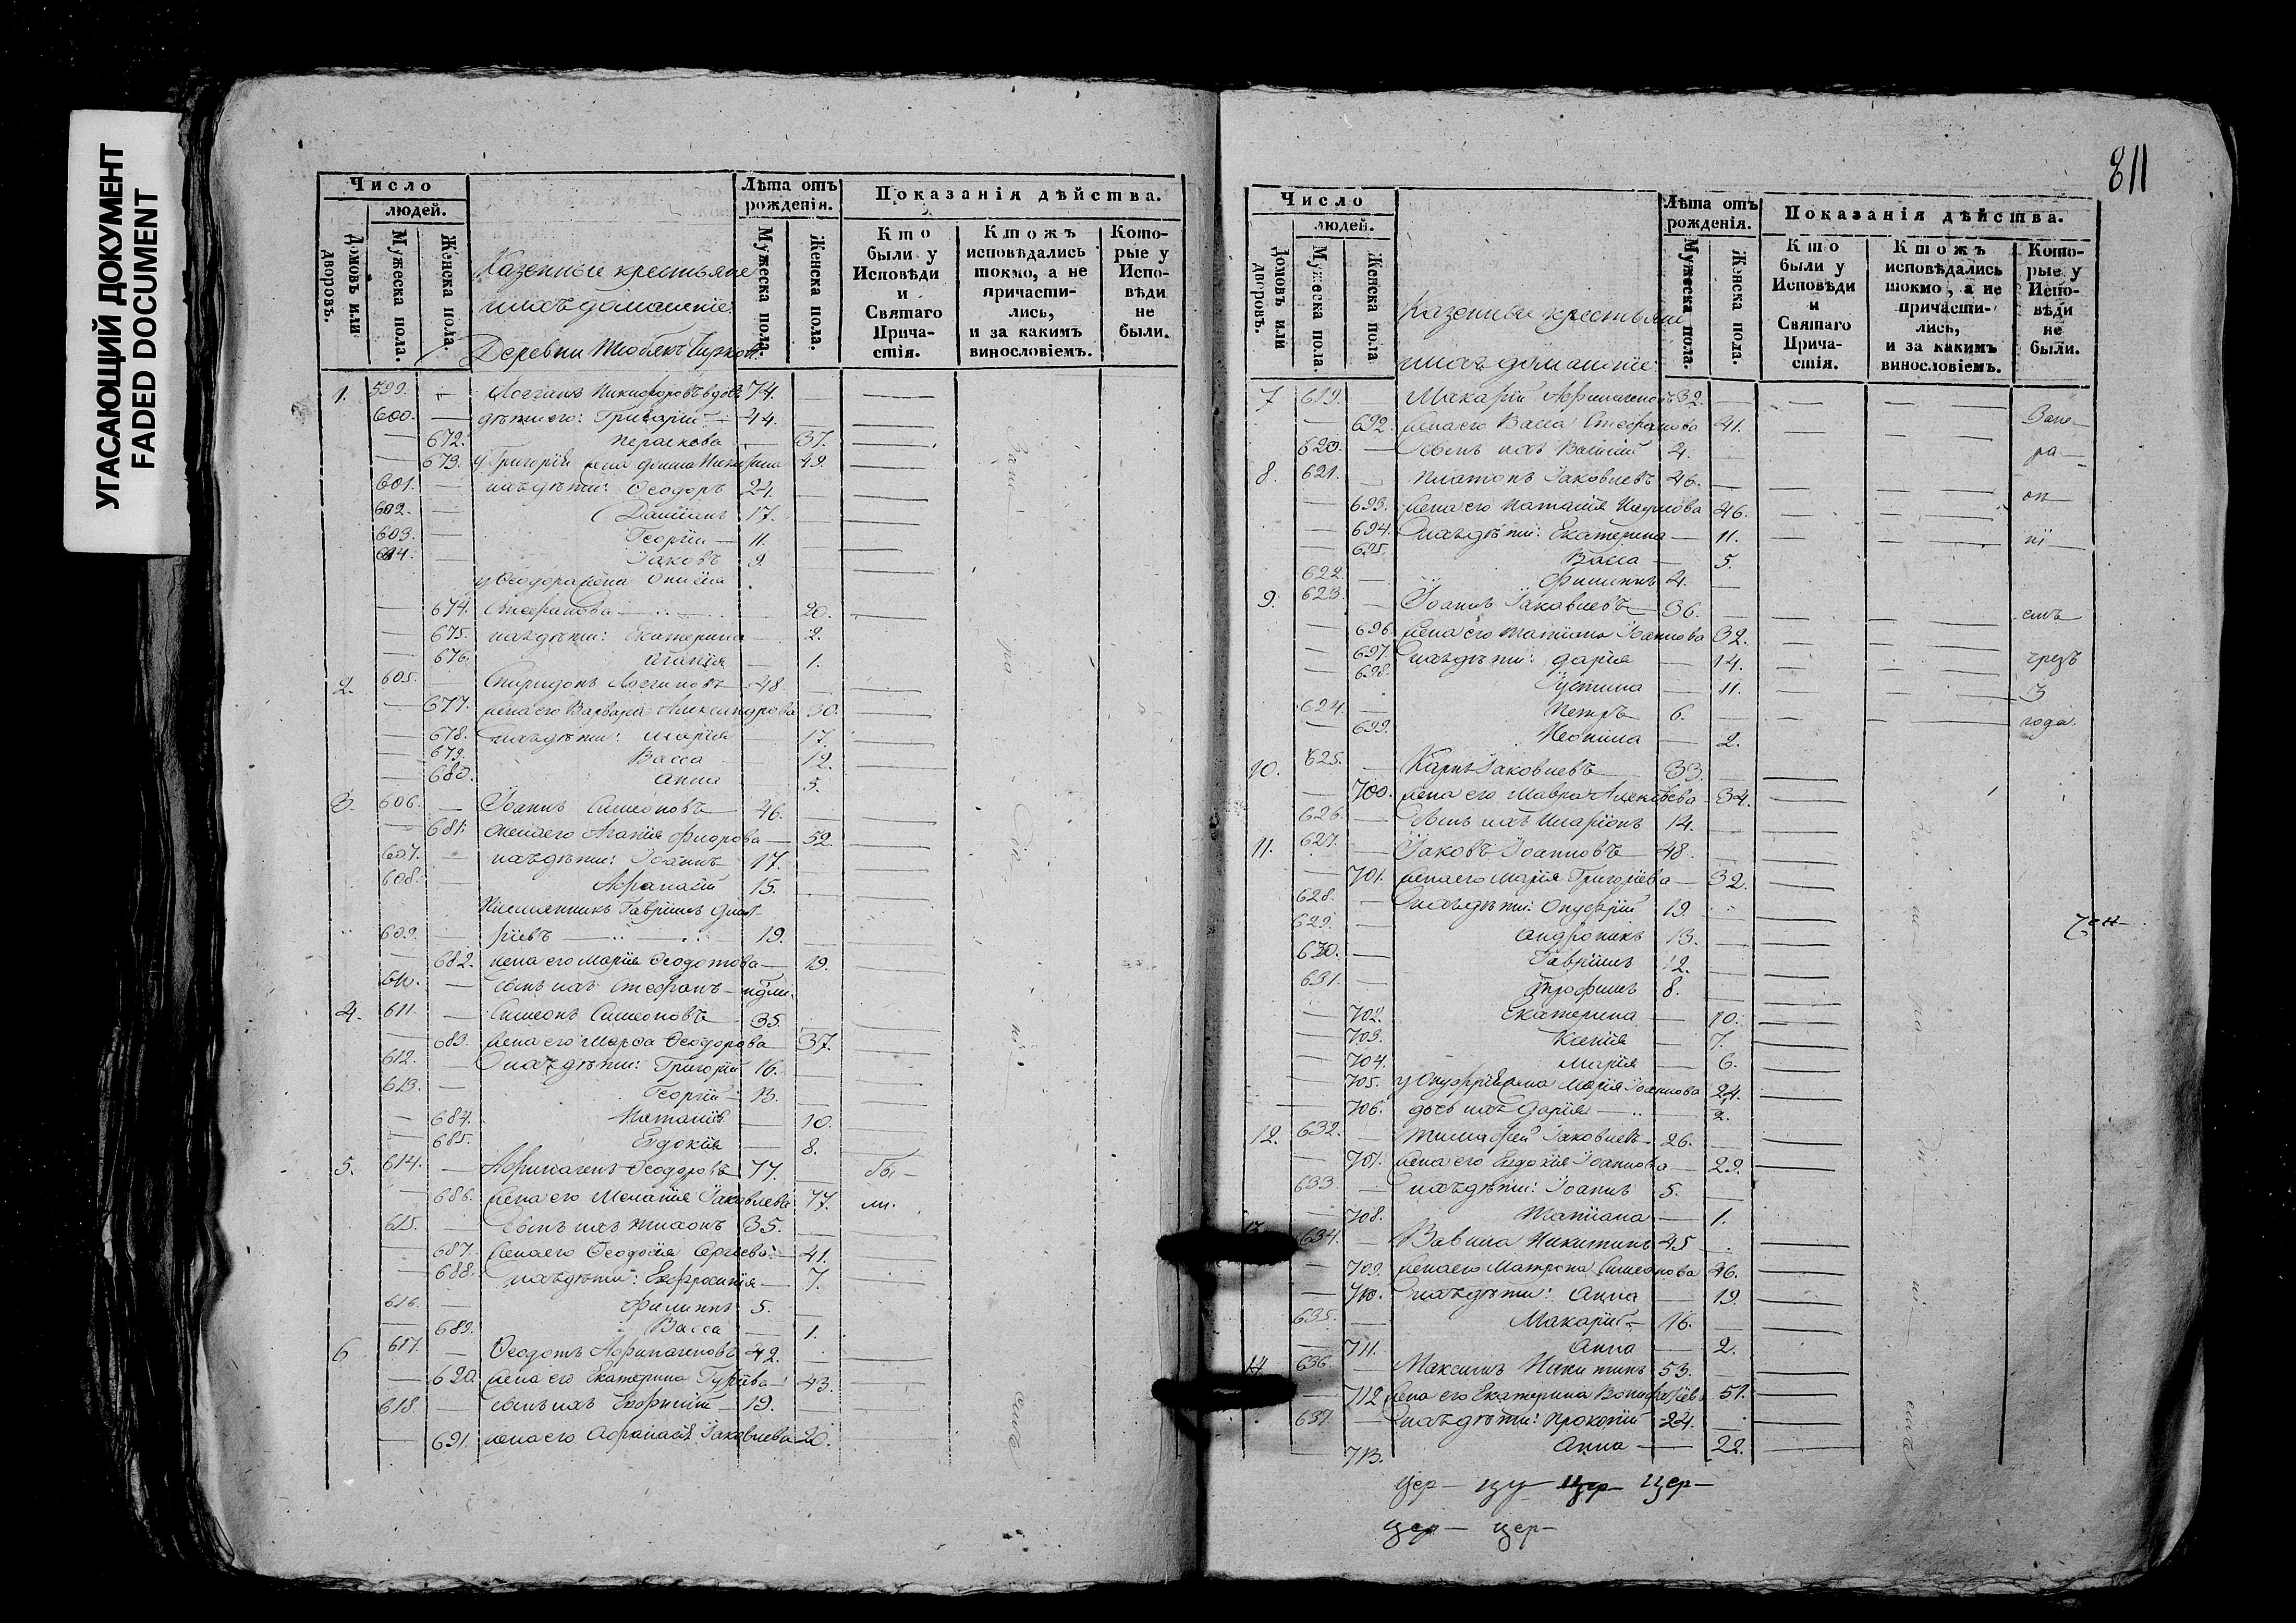 УГАСАЮЩИЙ ДОКУМЕНТ
FADED DOCUMENT
Число
людей.
Домовъ или дворовъ.
Мужеска пола.
Женска пола.
Казенные крестьяне
и ихъ домашніе.
Деревни
Лѣта отъ рожденія.
Мужеска пола.
Женска пола.
Показанія дѣйства.
Кто были у Исповѣди и Святаго Причастія.
Ктожъ исповѣдались токмо, а не причастились, и за какимъ винословіемъ.
Которые у Исповѣди не были.
1. 599. — Логгинъ Никифоровъ вдовъ 74.
600. — дѣти его: Григорій — 44.
— 672. Параскева — 37.
— 673. у Григорія жена 49.
601. — ихъ дѣти: Ѳеодоръ 24.
602. — Даніилъ 17.
603. — Георгій — 11.
604. — Іаковъ 9.
у Ѳеодора жена
— 674. Стефанова — 20.
— 675. ихъ дѣти: Екатерина — 2.
— 676. Агаѳія — 1.
2. 605. — Спиридонъ Логгиновъ 48. —
— 677. жена его Варвара Александрова 30.
— 678. ихъ дѣти: Марія — 17.
— 679. Васса — 12.
— 680. Анна 5.
3. 606. — Іоаннъ Симеоновъ — 46. —
— 681. жена его Агаѳія — 52.
607. — ихъ дѣти: Іоаннъ 17.
608. — Аѳанасій 15.
Племянникъ Гавріилъ
609. — ріевъ — 19. —
— 682. жена его Марія Ѳеодотова — 19.
610. — Сынъ ихъ Стефанъ —
4. 611. — Симеонъ Симеоновъ 35.
— 683. жена его Марѳа Ѳеодорова — 37.
612. — ихъ дѣти: Григорій 16.
613. — Георгій — 13.
— 684. Наталія — 10.
— 685. Евдокія — 8.
5. 614. — Аѳиногенъ Ѳеодоровъ 77. — бы-
— 686. жена его Меланія Іаковлева 77. ли.
615. — Сынъ ихъ Тихонъ 35. —
— 687. жена его Ѳеодосія Сергіева — 41.
— 688. ихъ дѣти: Евфросинія — 7.
616. — Филиппъ 5. —
— 689. Васса — 1.
6 617. — Ѳеодотъ Аѳиногеновъ 42. —
— 690. жена его Екатерина Гуріева 43.
618. — сынъ ихъ 19. —
— 691. жена его Іаковлева 20.
811
Число
людей.
Домовъ или дворовъ.
Мужеска пола.
Женска пола
Казенные крестьяне
и ихъ домашніе.
Лѣта отъ рожденія.
Мужеска пола.
Женска пола.
Показанія дѣйства.
Кто были у Исповѣди и Святаго Причастія.
Ктожъ исповѣдались токмо, а не причастились, и за какимъ винословіемъ.
Которые у Исповѣди не были.
7 619. Макарій Аѳиногеновъ 32. —
— 692. жена его Васса Стефанова 41.
620. — Сынъ ихъ 4.
8. 621. — Платонъ Іаковлевъ 46. —
— 693. жена его Наталія 46.
— 694. ихъ дѣти: Екатерина — 11.
— 695. Васса — 5.
622. — Филиппъ 4. —
9. 623. — Іоаннъ Іаковлевъ 36.
— 696. жена его Татіана Іоаннова 32.
— 697. ихъ дѣти: Дарія — 14.
— 698. Іустина — 11.
624. — Петръ 6. —
— 699. Неонила — 2.
ра
емъ
чрезъ
3
года.
10. 625. — Карпъ Іаковлевъ 33. —
— 700. жена его Мавра 34.
626. — Сынъ ихъ Иларіонъ 14. —
11. 627. — Іаковъ Іоанновъ 48.
— 701. жена его Марія Григоріева — 32.
628. — ихъ дѣти: Онуфрій 19.
629. — Андроникъ 13. —
630. — Гавріилъ 12.
631. — Трофимъ 8. —
— 702. Екатерина — 10.
— 703. Ксенія — 7.
— 704. Марія — 6.
— 705. у Онуфрія жена Марія Іоаннова 24.
— 706. дочь ихъ Дарія — 2.
12. 632. — Тимофей Іаковлевъ 26. —
— 707. жена его Евдокія Іоаннова — 29.
633. — ихъ дѣти: Іоаннъ 5. —
— 708. Татіана — 1.
13 634. — Вавила Никитинъ 45 —
— 709. жена его Матрона Симеонова 46.
— 710. ихъ дѣти: Анна — 19.
635. — Макарій — 16. —
— 711. Анна — 2.
14 636. — Максимъ Никитинъ 53. —
— 712 жена его Екатерина 51.
637. — ихъ дѣти: Прокопій 24.
— 713. Анна — 22.
цер— цу— цер— цер—
цер— цер—